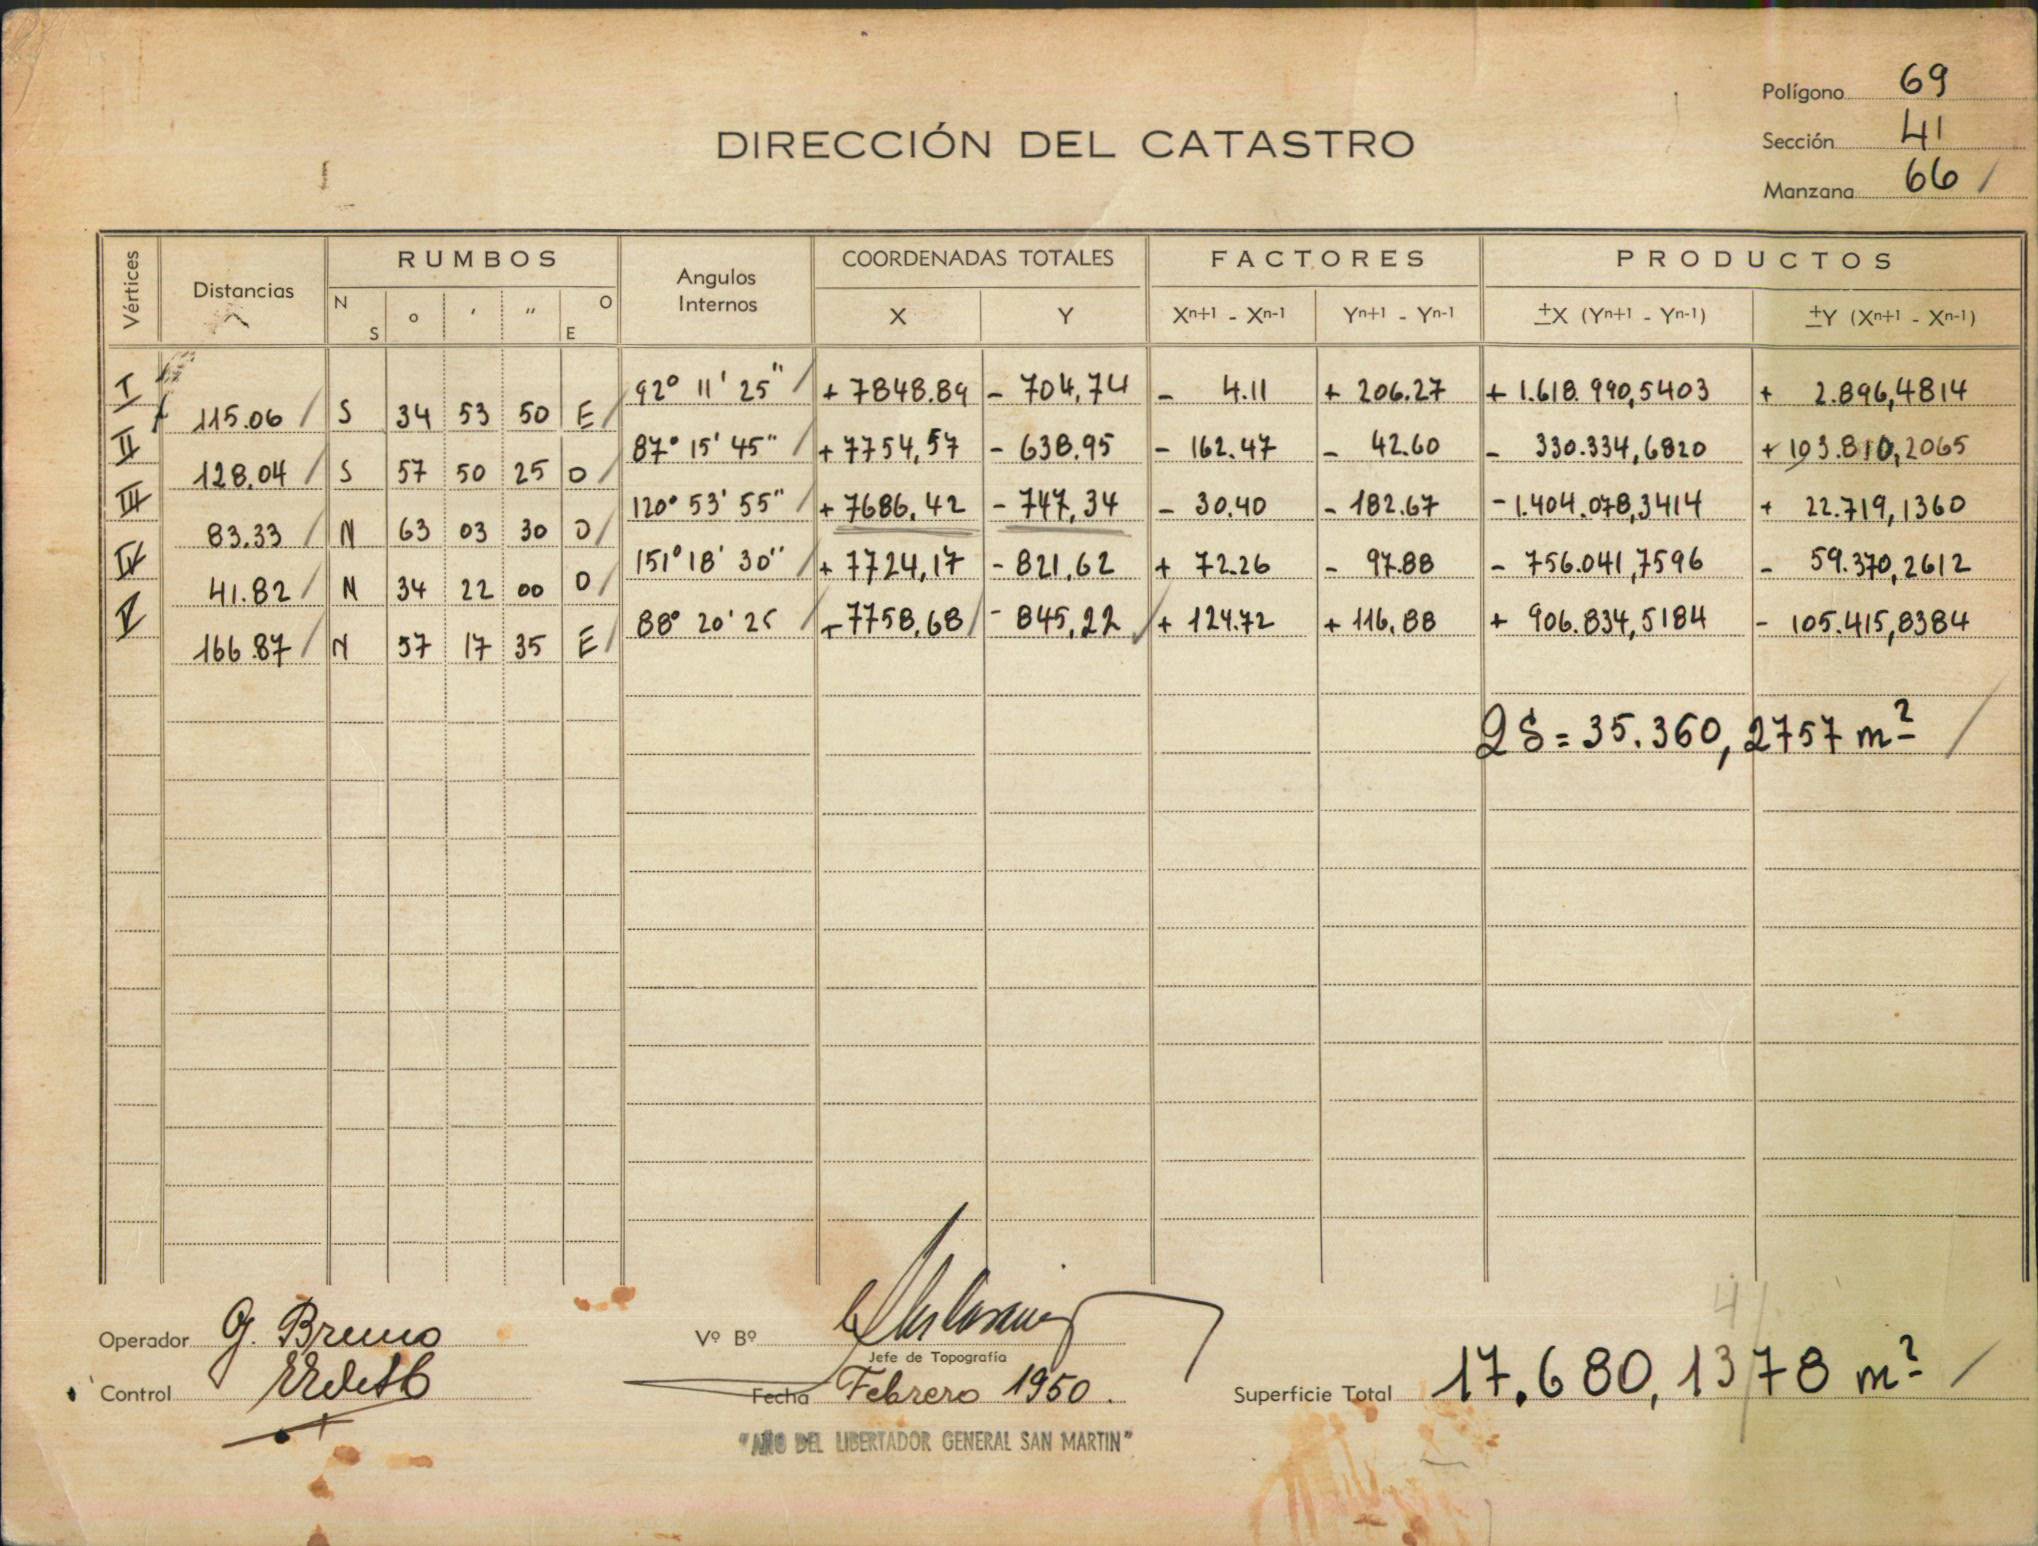 Polígono 69
DIRECCIÓN DEL CATASTRO
Sección 41
Manzana 66
Vértices Distancias RUMBOS Angulos Internos COORDENADAS TOTALES FACTORES PRODUCTOS
N S o ' " O E X Y Xn+1 - Xn-1 Yn+1 - Yn-1 ±X (Yn+1 - Yn-1) ±Y (Xn+1 - Xn-1)
I 92° 11' 25" + 7848.89 - 704,74 - 4.11 + 206.27 + 1.618.990,5403 + 2.896,4814
115.06 S 34 53 50 E
II 87° 15' 45" + 7754,57 - 638.95 - 162.47 - 42.60 - 330.334,6820 + 103.810,2065
128.04 S 57 50 25 O
III 120° 53' 55" + 7686,42 - 747,34 - 30.40 - 182.67 - 1.404.078,3414 + 22.719,1360
83.33 N 63 03 30 O
IV 151° 18' 30" + 7724,17 - 821,62 + 72.26 - 97.88 - 756.041,7596 - 59.370,2612
41.82 N 34 22 00 O
V 88° 20' 25 + 7758,68 - 845,22 + 124.72 + 116.88 + 906.834,5184 - 105.415,8384
166.87 N 57 17 35 E
2S = 35.360,2757 m²
Operador G. Bruno Vº Bº
Jefe de Topografía
Control Fecha Febrero 1950. Superficie Total 17.680,1378 m²
"AÑO DEL LIBERTADOR GENERAL SAN MARTIN"